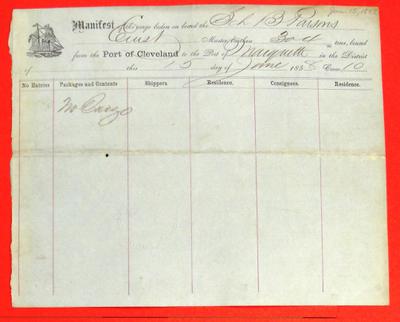 Manifest of Cargo laden on board the Sch B Parsons
Master, burthen 304 tons, bound
from the Port of Cleveland to the Port of Marquett in the District
of this 15 day of June 1858 Crew 10
No Entries Packages and Contents Shippers. Residence. Consignees. Residence.
No Cargo